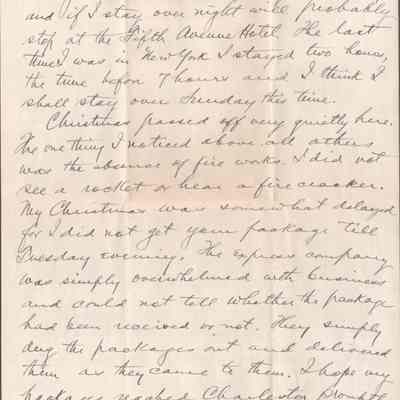 and if I stay over night will probably
stop at the Fifth Avenue Hotel. The last
time I was in New York I stayed two hours,
the time before 7 hours and I think I
shall stay over Sunday this time.
Christmas passed off very quietly here.
The one thing I noticed above all others
was the absence of fire works. I did not
see a rocket or hear a firecracker.
My Christmas was somewhat delayed
for I did not get your package till
Tuesday evening. The express company
was simply overwhelmed with business
and could not tell whether the package
had been received or not. They simply
dug the packages out and delivered
them as they came to them. I hope my
package reached Charleston promptly